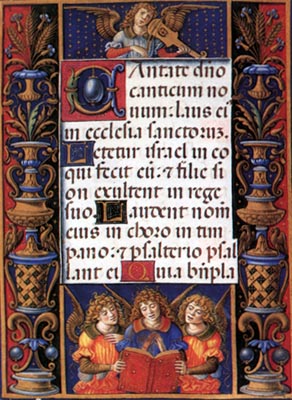 CAntate dño
canticum no
uum: laus ei⁹
in ecclesia sanctorum.
Letetur israel in eo
qui fecit eũ: & filie si
on exultent in rege
suo. Laudent nom̃
eius in choro: in tim
pano: & psalterio psal
lant ei Quia bñpla